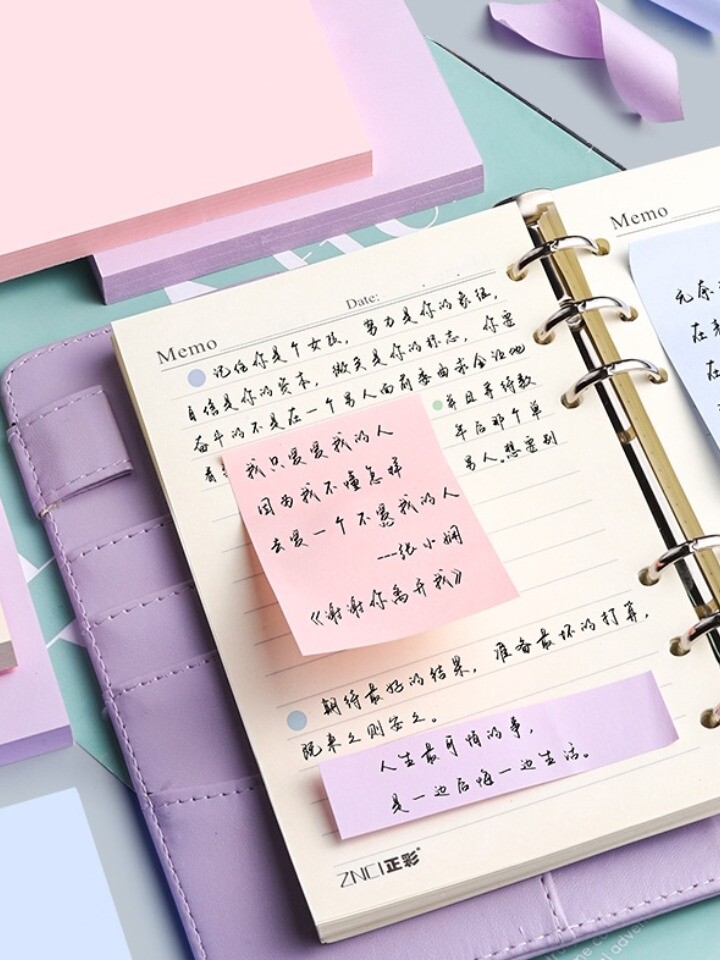 Date:
Memo
记住你是个女孩，努力是你的象征，
自信是你的资本，微笑是你的标志，你要
奋斗的不是在一个男人面前委曲求全让他
并且等待数
年后那个单
男人。想要别
我只爱爱我的人
因为我不懂怎样
去爱一个不爱我的人
---张小娴
《谢谢你离开我》
期待最好的结果，准备最坏的打算，
既来之则安之。
人生最可怕的事，
是一边后悔一边生活。
ZNCI正彩
Memo
在
在